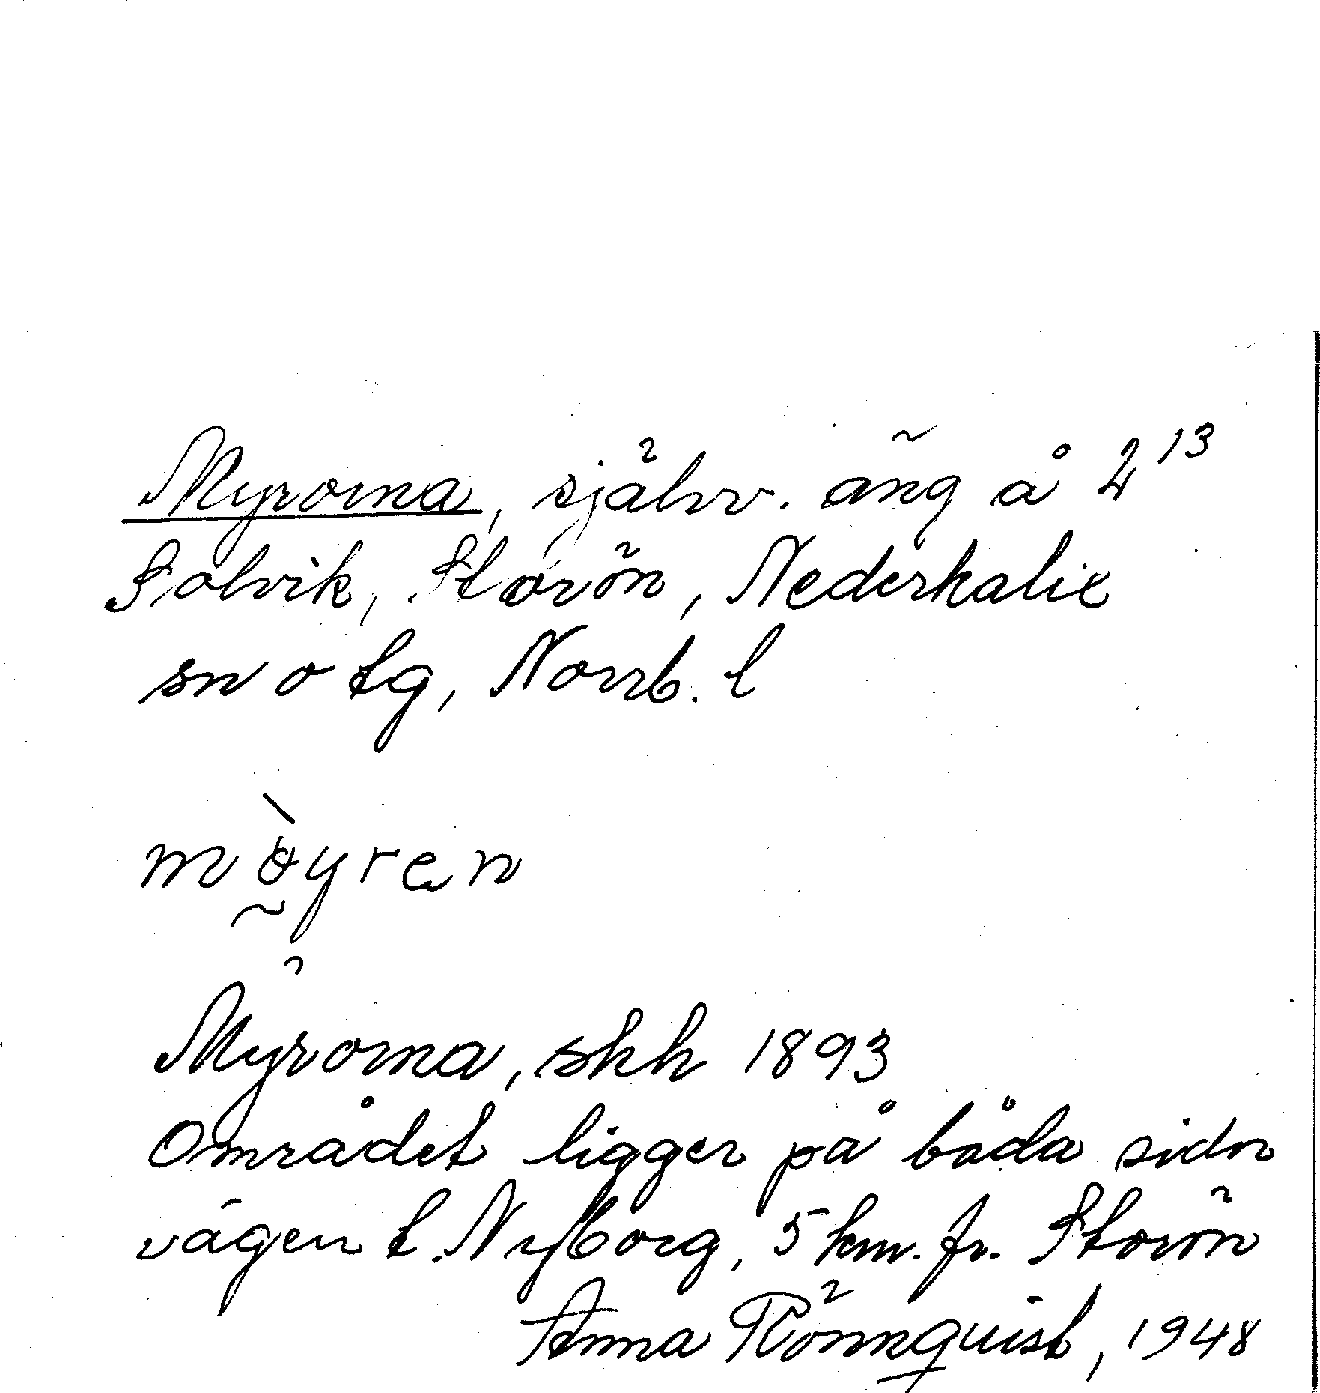 Myrorna, självv. äng å 2¹³
Solvik, Storön, Nederkalix
sn o tg, Norrb. l
mỳren
Myrorna, shh 1893
Området ligger på båda sidor
vägen t. Nyborg, 5 km. fr. Storön
Anna Rönnquist, 1948